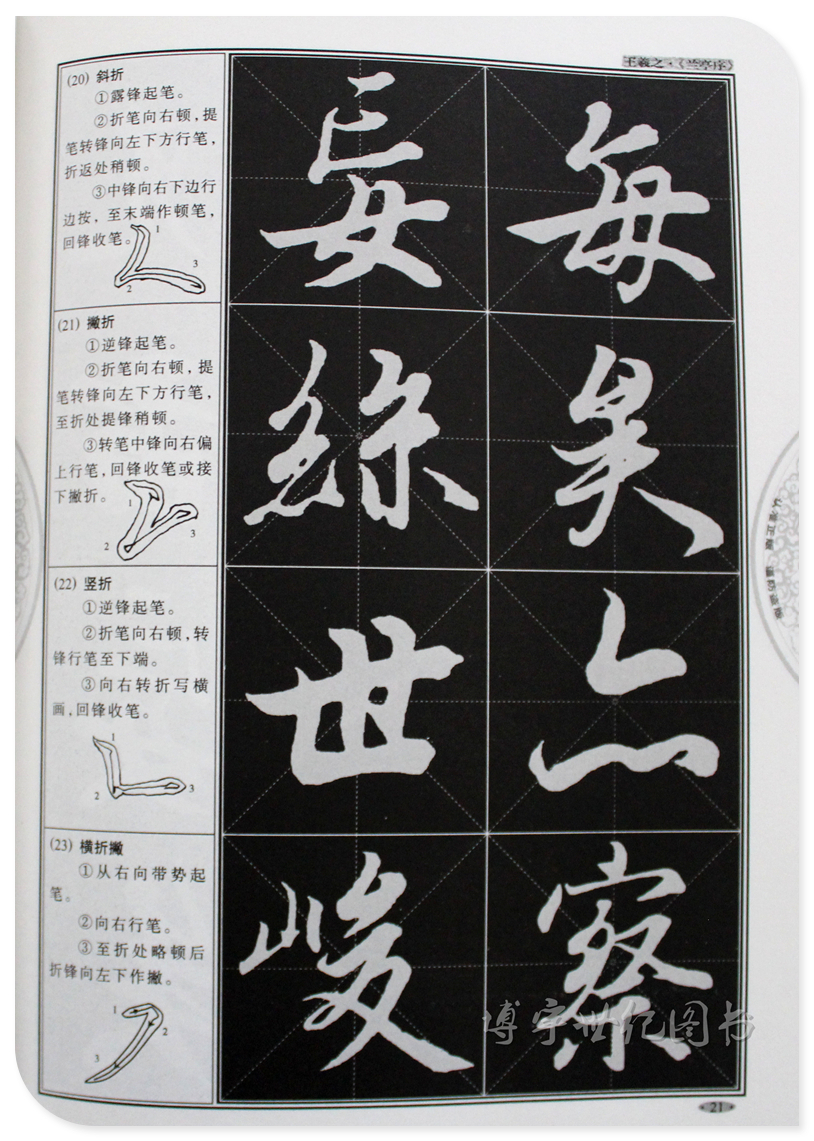 王羲之·《兰亭序》
(20) 斜折
①露锋起笔。
②折笔向右顿，提
笔转锋向左下方行笔，
折返处稍顿。
③中锋向右下边行
边按，至末端作顿笔，
回锋收笔。
1
2
3
妄 每
(21) 撇折
①逆锋起笔。
②折笔向右顿，提
笔转锋向左下方行笔，
至折处提锋稍顿。
③转笔中锋向右偏
上行笔，回锋收笔或接
下撇折。
1
2
3
絲 矣
(22) 竖折
①逆锋起笔。
②折笔向右顿，转
锋行笔至下端。
③向右转折写横
画，回锋收笔。
1
2
3
世 亦
(23) 横折撇
①从右向带势起
笔。
②向右行笔。
③至折处略顿后
折锋向左下作撇。
1
2
3
峻 察
博宇世亿图书
21